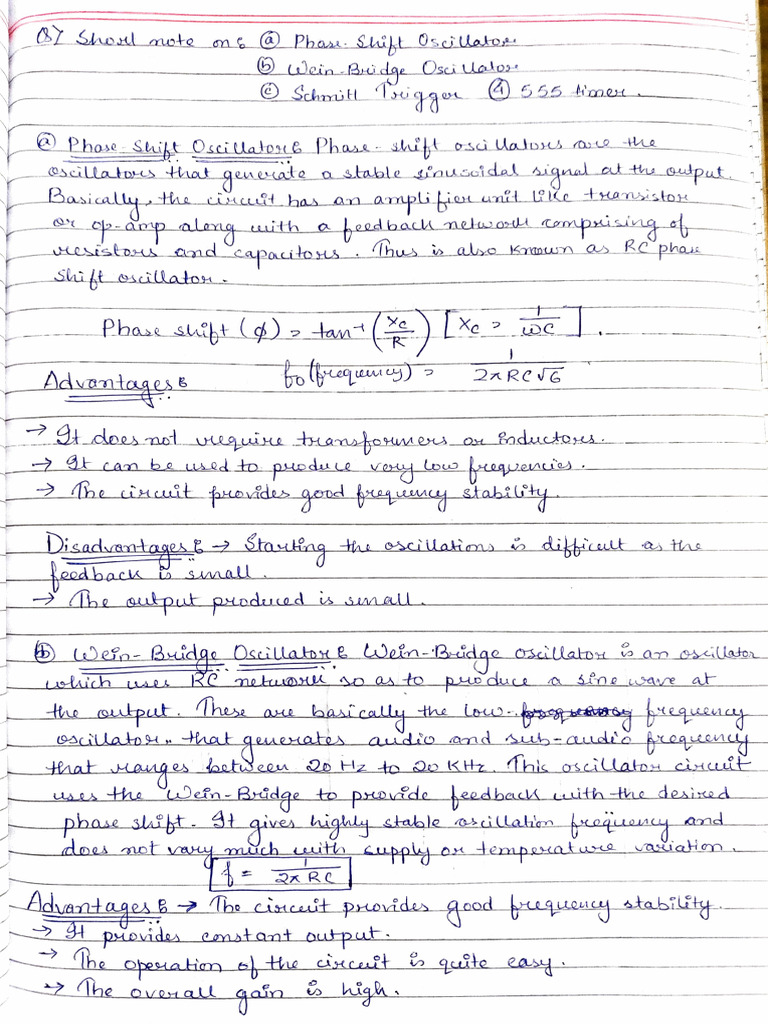 Q8) Short note on: (a) Phase-Shift Oscillator
(b) Wein-Bridge Oscillator
(c) Schmitt Trigger (4) 555 timer.
(a) Phase-Shift Oscillator: Phase-shift oscillators are the
oscillators that generate a stable sinusoidal signal at the output.
Basically, the circuit has an amplifier unit like transistor
or op-amp along with a feedback network comprising of
resistors and capacitors. Thus is also known as RC phase
shift oscillator.
Phase shift (φ) = tan⁻¹ (Xc/R) [Xc = 1/ωC].
Advantages: fo (frequency) = 1/2πRC√6
→ It does not require transformers or inductors.
→ It can be used to produce very low frequencies.
→ The circuit provides good frequency stability.
Disadvantages: → Starting the oscillations is difficult as the
feedback is small.
→ The output produced is small.
(b) Wein-Bridge Oscillator: Wein-Bridge oscillator is an oscillator
which uses RC network so as to produce a sine wave at
the output. These are basically the low-frequency
oscillator that generates audio and sub-audio frequency
that ranges between 20 Hz to 20 KHz. This oscillator circuit
uses the Wein-Bridge to provide feedback with the desired
phase shift. It gives highly stable oscillation frequency and
does not vary much with supply or temperature variation.
f = 1/2πRC
Advantages: → The circuit provides good frequency stability.
→ It provides constant output.
→ The operation of the circuit is quite easy.
→ The overall gain is high.